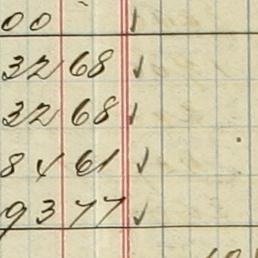 00 ✓
32 68 ✓
32 68 ✓
84 61 ✓
93 77 ✓